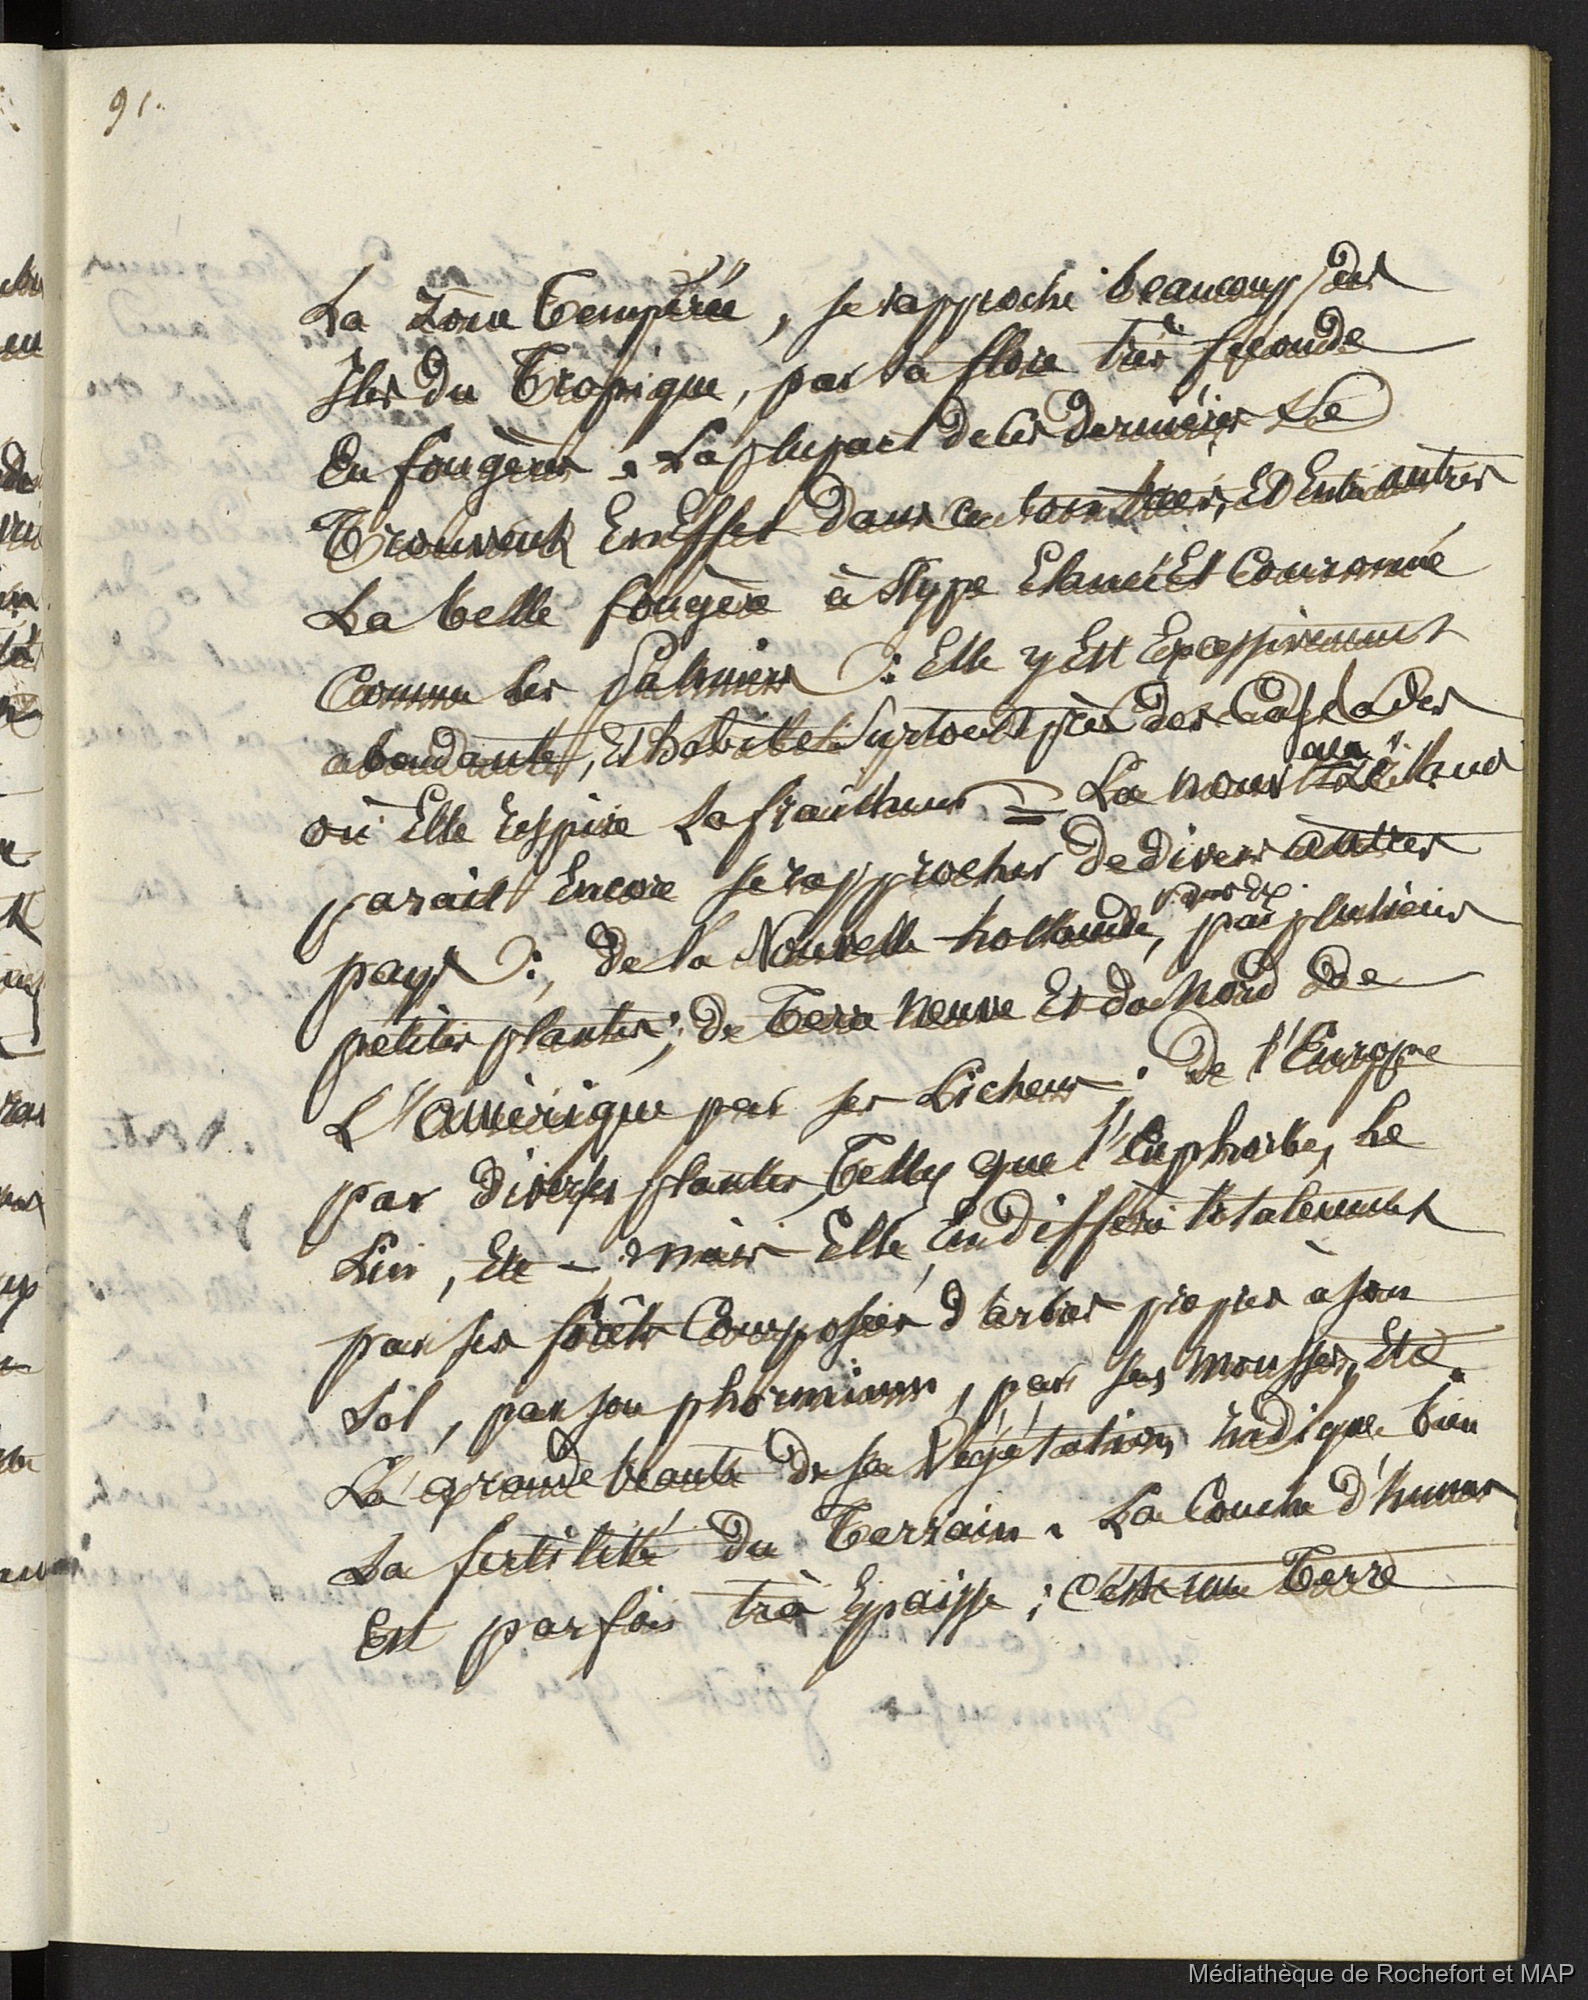 91.
La Zone Tempérée, se rapproche beaucoup des
Iles du Tropique, par sa flore très feconde
En fougères. La plupart de ces dernières se
Trouvent En Effet dans ces Et Entre autres
La belle fougère à Stype Elancé Et Couronné
Comme les Palmiers : Elle y Est Excessivement
abondante, Et habite Surtout près des Cascades
où Elle respire la fraicheur = La nouv.lle Zélande
parait Encore se rapprocher de divers autres
pays :, de la Nouvelle hollande, par plusieurs
petites plantes; de Terre Neuve Et du Nord de
L'amérique par ses Lichens; de l'Europe
par diverses plantes, Telles que l'Euphorbe, le
Lin, Etc -; mais Elle En diffère totalement
par ses forêts Composées d'arbres propres à son
Sol, par son phormium, par ses mousses, Etc.
La grande beauté de sa Végétation indique bien
La fertilité du Terrain. La Couche d'humus
Est parfois très Epaisse; c'est une Terre
Médiathèque de Rochefort et MAP